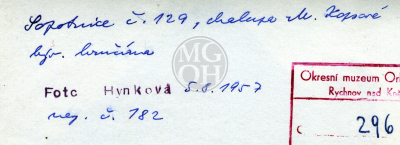 Sopotnice č. 129, chalupa M. Kopové
býv.
Foto Hynková 5.8.1957
neg. č. 182
Okresní muzeum Or
Rychnov nad Kn
č 296
MG
OH